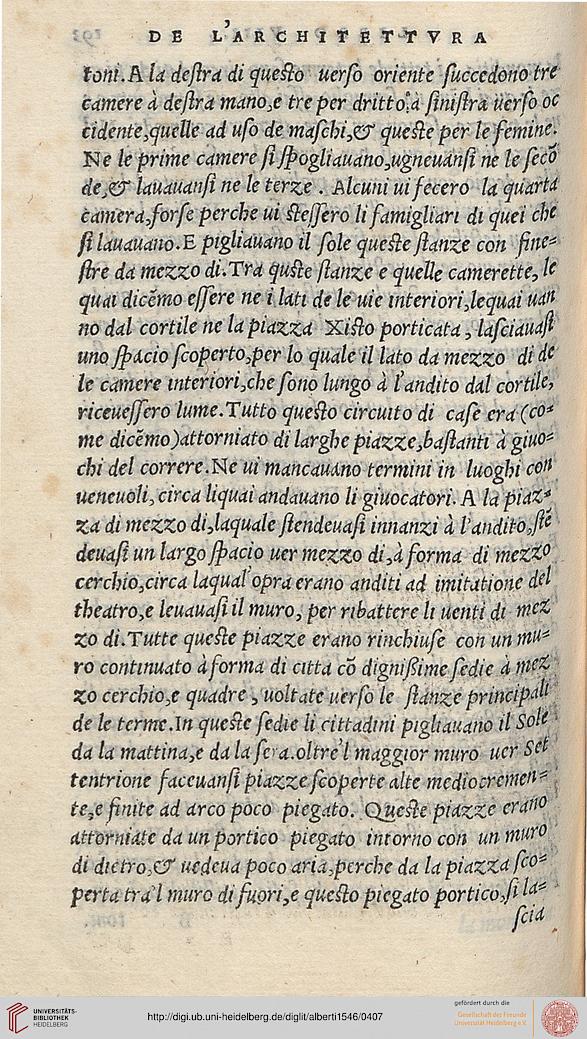 DE L'ARCHITETTVRA
toni. A la destra di questo uerso oriente succedono tre
camere à destra mano,e tre per dritto à sinistra uerso oc
cidente,quelle ad uso de maschi,& queste per le femine.
Ne le prime camere si spogliauano,ugneuansi ne le secõ
de,& lauauansi ne le terze . Alcuni ui fecero la quarta
camera,forse perche ui stessero li famigliari di quei che
si lauauano. E pigliauano il sole queste stanze con fine=
stre da mezzo di. Tra quste stanze e quelle camerette, le
quai dicẽmo essere ne i lati de le uie interiori,lequai uan
no dal cortile ne la piazza Xisto porticata , lasciauasi
uno spacio scoperto,per lo quale il lato da mezzo di de
le camere interiori,che sono lungo à l'andito dal cortile,
riceuessero lume. Tutto questo circuito di case era (co=
me dicẽmo)attorniato di larghe piazze,bastanti à giuo=
chi del correre. Ne ui mancauano termini in luoghi con
ueneuoli, circa liquai andauano li giuocatori. A la piaz=
za di mezzo di,laquale stendeuasi innanzi à l'andito,stẽ
deuasi un largo spacio uer mezzo di,à forma di mezzo
cerchio,circa laqual'opra erano anditi ad imitatione del
theatro,e leuauasi il muro, per ribattere li uenti di mez
zo di. Tutte queste piazze erano rinchiuse con un mu=
ro continuato à forma di citta cõ dignißime sedie à mez
zo cerchio,e quadre , uoltate uerso le stanze principali
de le terme. In queste sedie li cittadini pigliauano il Sole
da la mattina,e da la sera.oltre'l maggior muro uer Set
tentrione faceuansi piazze scoperte alte mediocremen=
te,e finite ad arco poco piegato. Queste piazze erano
attorniate da un portico piegato intorno con un muro
di dietro,& uedeua poco aria,perche da la piazza sco=
perta tra'l muro di fuori,e questo piegato portico,si la=
scia
UNIVERSITÄTS-
BIBLIOTHEK
HEIDELBERG
http://digi.ub.uni-heidelberg.de/diglit/alberti1546/0407
gefördert durch die
Gesellschaft der Freunde
Universität Heidelberg e.V.